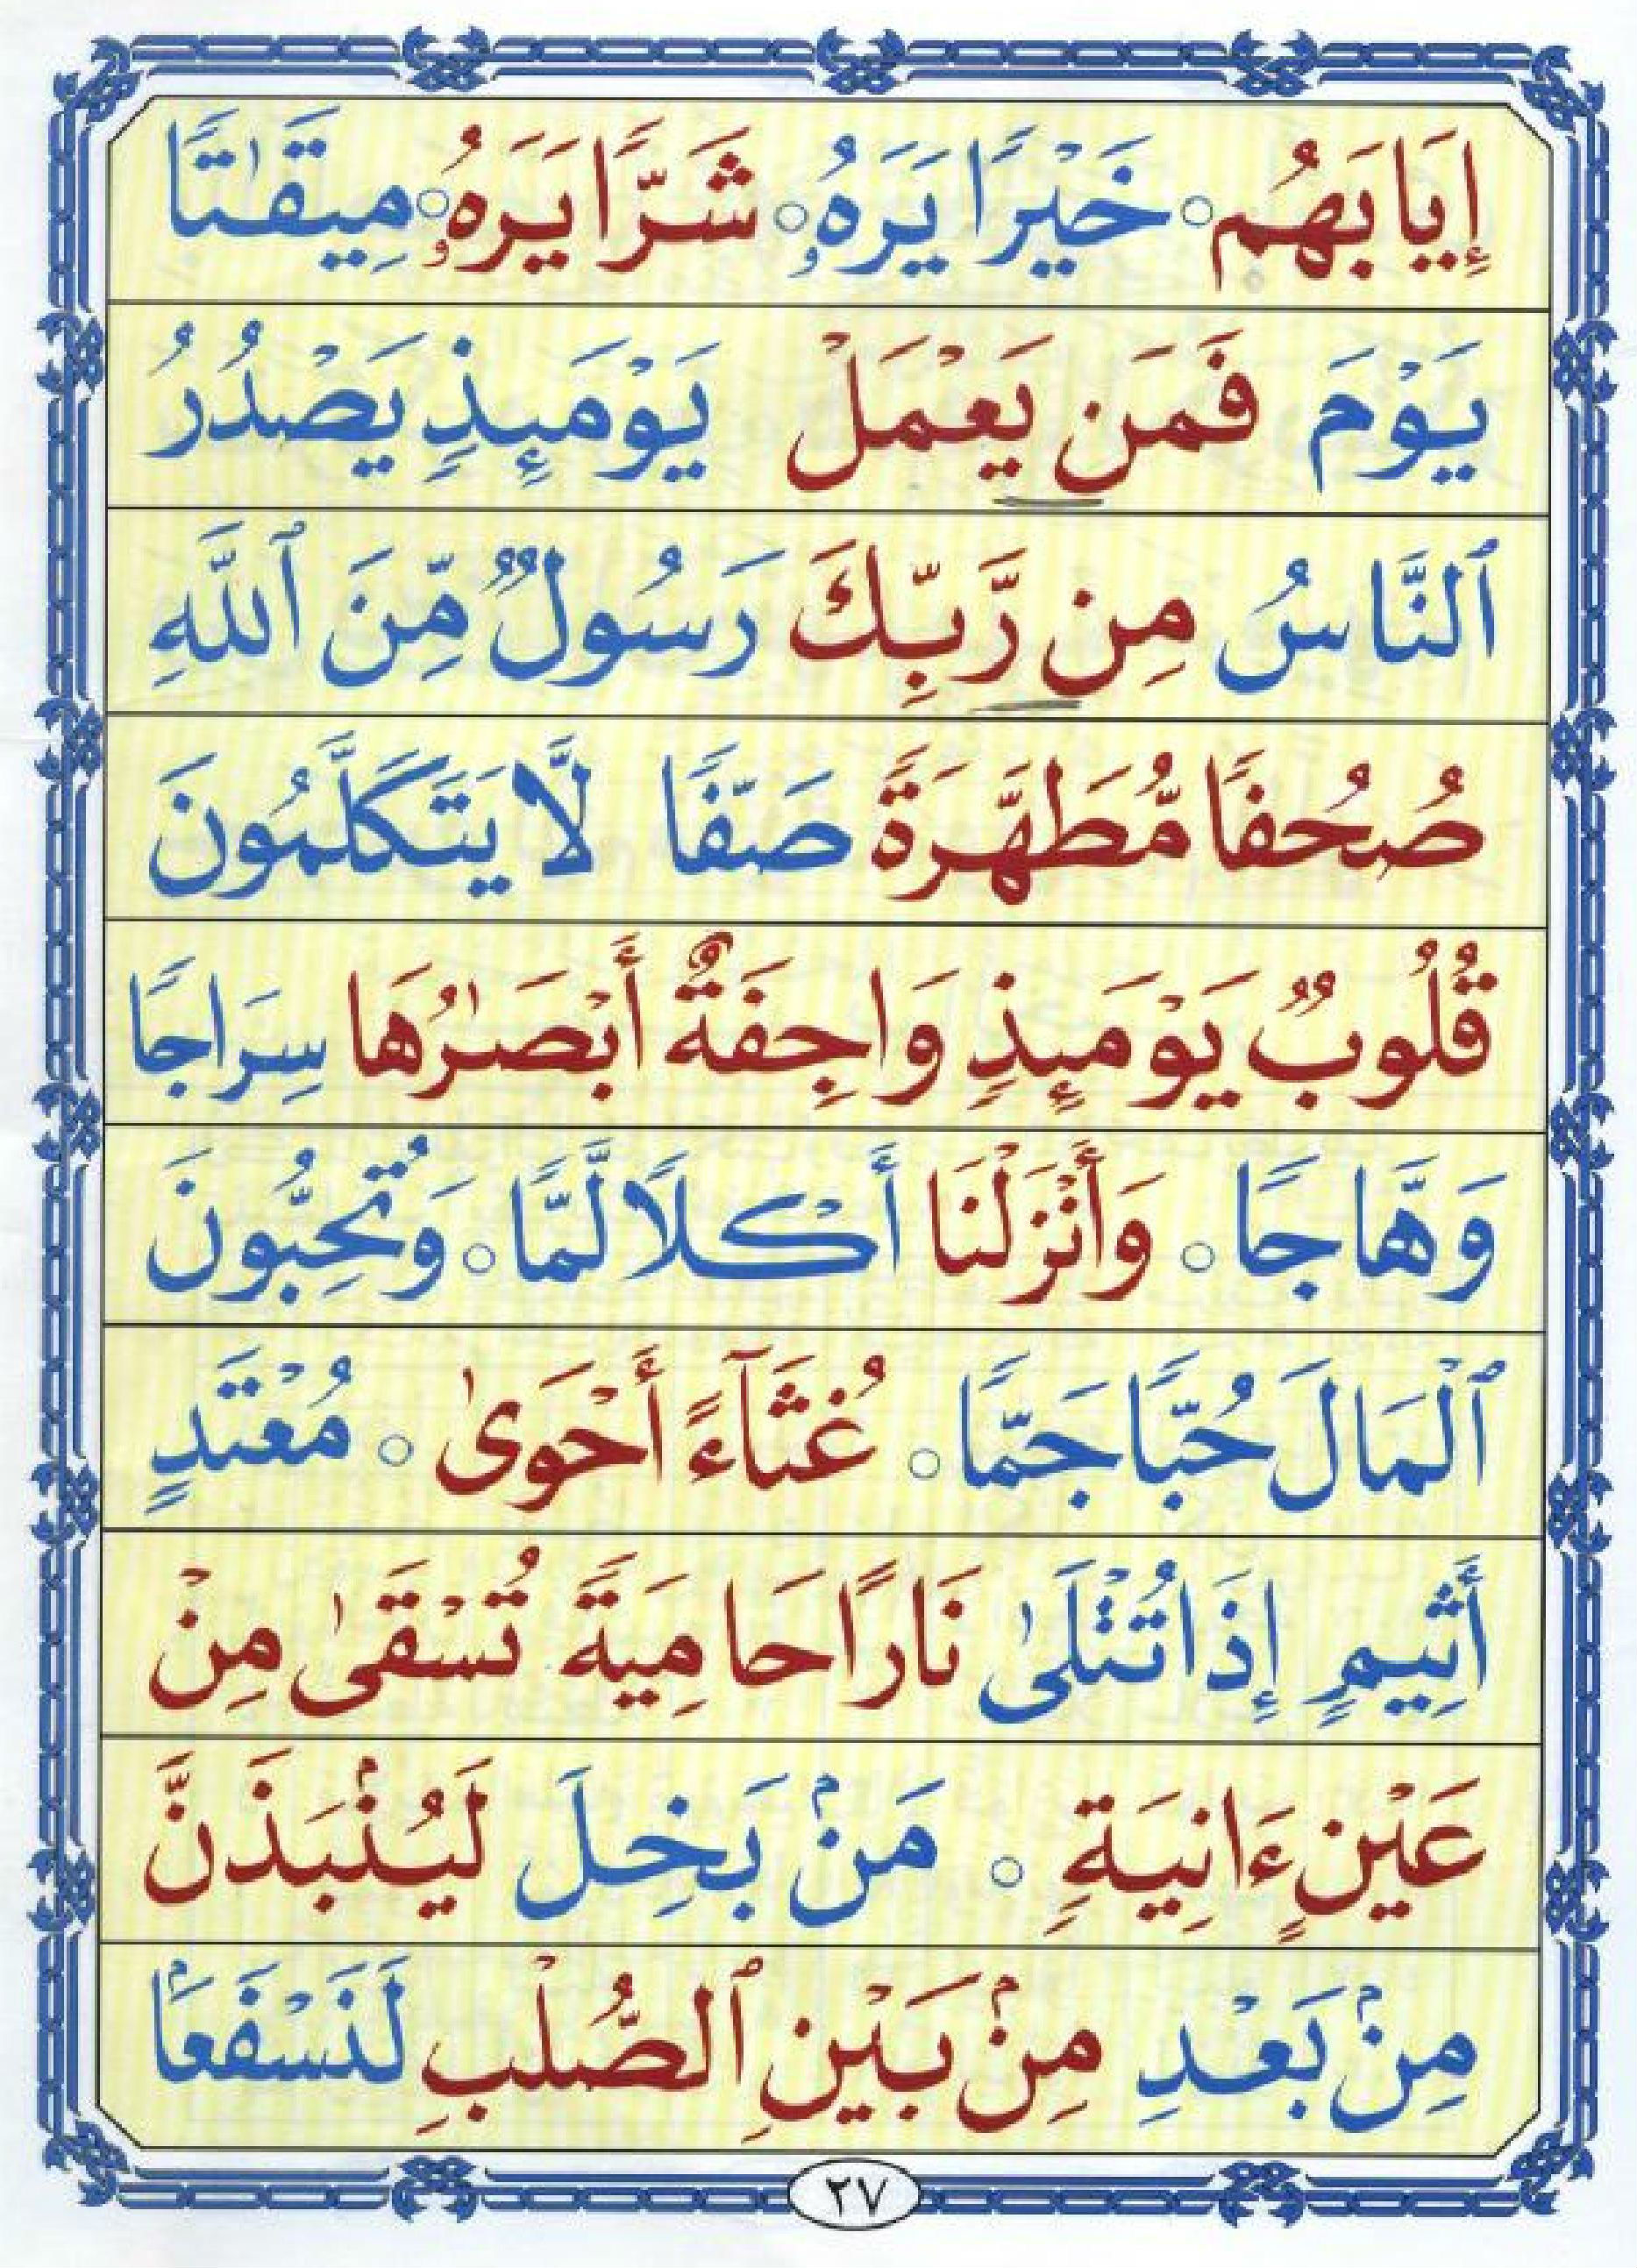 إِيَابَهُم ○ خَيْرًا يَرَهُۥ ○ شَرًّا يَرَهُۥ ○ مِيقَٰتًا
يَوْمَ فَمَن يَعْمَلْ يَوْمَئِذٍ يَصْدُرُ
ٱلنَّاسُ مِن رَّبِّكَ رَسُولٌ مِّنَ ٱللَّهِ
صُحُفًا مُّطَهَّرَةً صَفًّا لَّا يَتَكَلَّمُونَ
قُلُوبٌ يَوْمَئِذٍ وَاجِفَةٌ أَبْصَٰرُهَا سِرَاجًا
وَهَّاجًا ○ وَأَنْزَلْنَا أَكْلًا لَّمًّا ○ وَتُحِبُّونَ
ٱلْمَالَ حُبًّا جَمًّا ○ غُثَآءً أَحْوَىٰ ○ مُعْتَدٍ
أَثِيمٍ إِذَا تُتْلَىٰ نَارًا حَامِيَةً تُسْقَىٰ مِنْ
عَيْنٍ ءَانِيَةٍ ○ مَنۢ بَخِلَ لَيُنۢبَذَنَّ
مِنۢ بَعْدِ مِنۢ بَيْنِ ٱلصُّلْبِ لَنَسْفَعَۢا
٢٧